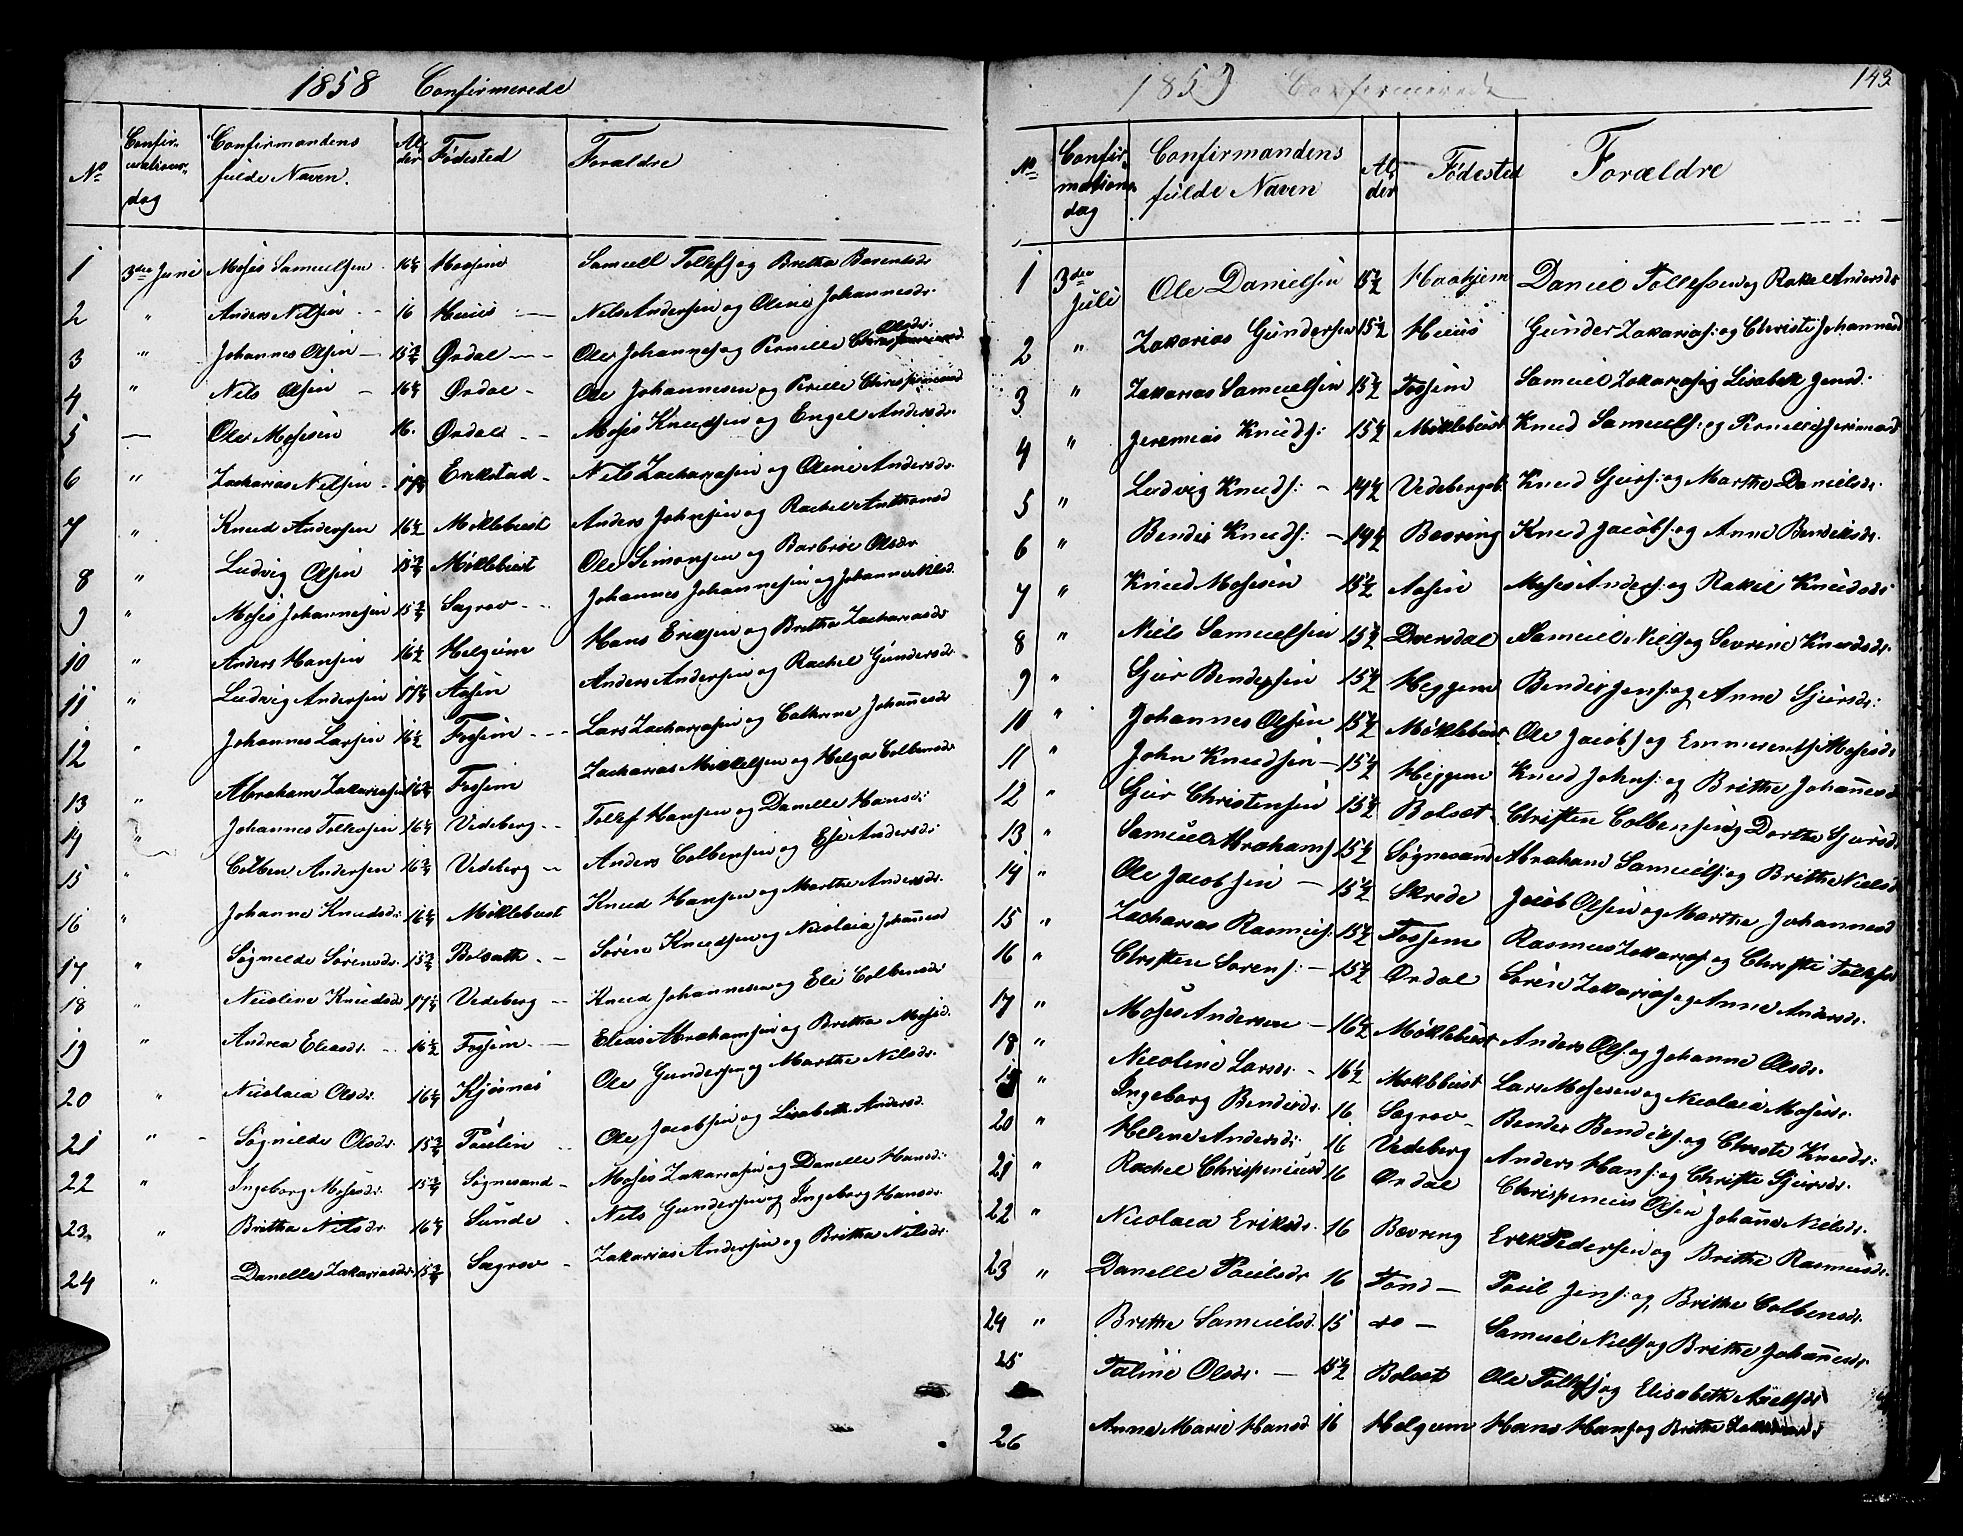 1858 Confirmerede
No Confirmationsdag Confirmandens fulde Navn. Alder Fødested Foraldre
1 3die Juni Moses Samuelsen 16¼ Hossium Samuell Tollefs og Brithe Barentsdr
2 " Anders Nilsen 16 Huus Nils Andersen og Oline Johannesdr.
3 " Johannes Olsen 15¾ Ørdal Ole Johannes og Pernille Olsdr.
4 " Nils Olsen 16¼ Ørdal Ole Johannesen og Pernille
5 — Ole Mosesen 16. Ørdal Moses Knudsen og Engel Andersdr.
6 " Zacharias Nilsen Erikstad Nils Zachariasen og Oline Andersdr.
7 " Knud Andersen 16½ Møklebust Anders Johnsen og Rachel Anthonsd
8 " Ludvig Olsen 15¾ Møklebust Ole Simonsen og Barbroe Olsdr
9 " Moses Johannesen 15¾ Sægrov Johannes Johannesen og Johanne Nilsd.
10 " Anders Hansen 16½ Helgium Hans Ericksen og Brithe Zachariasdr
11 " Ludvig Andersen 17¼ Aasen Anders Andersen og Rachel Gundersdr.
12 " Johannes Larsen 16½ Fossum Lars Zachariasen og Cathrine Johanesdr
13 " Abraham Zakariasen 16¾ Fossum Zacharias Mikkelsen og Helga Colbensdr
14 " Johannes Tollefsen 16¼ Vedeberg Tollef Hansen og Danelle Hansdr.
15 " Colben Andersen 16¾ Vedeberg Anders Colbensen og Else Andersdr.
16 " Johanne Knudsdr. 16¼ Møklebust Knud Hansen og Marthe Andersdr.
17 " Søgnilde Sørensdr. 15¾ Bolsæth Søren Knudsen og Nicolaia Johanesd
18 " Nicoline Knudsdr. 17¼ Vedeberg Knud Johannesen og Eli Colbensdr
19 " Andrea Eliasdr. 16½ Fossum Elias Abrahamsen og Brithe Mosesd.
20 " Nicolaia Olsdr. 16¼ Kjøsnæs Ole Gundersen og Marthe Nilsdr.
21 " Søgnilde Olsdr. 15¾ Paulin Ole Jacobsen og Lisabeth Andersd.
22 " Ingeborg Mosesdr. 15¾ Søgnesand Moses Zakariasen og Danelle Hansdr.
23. " Brithe Nilsdr. 16¼ Sunde Nils Gundersen og Ingeborg Hansdr.
24 " Danelle Zakariasdr. 15¾ Sægrov Zakarias Andersen og Brithe Nilsdr.
143
1859 Confirmerede
No Confirmationsdag Confirmandens fulde Navn Alder Fødested Forældre
1 3die Juli Ole Danielsen 15½ Haahjem Daniel Tollefsen og Rakel Andersdr
2 " Zakarias Gundersen 15½ Huus Gunder Zakarias: og Christi Johannesd
3 " Zakarias Samuelsen 15½ Fossum Samuel Zakarias og Lisabeth Jensd.
4 " Jeremias Knuds: 15½ Møklebust Knud Samuels: og Pernille Jerimiasd
5 " Ludvig Knuds: 14½ Vedeberg Knud Gjers: og Marthe Danielsdr.
6 " Bendix Knuds: 14½ Bævring Knud Jacobs: og Anne Bendiksdr.
7 " Knud Mosesen 15½ Aasen Moses Anders: og Rakel Knudsdr
8 " Niels Samuelsen 15½ Dversdal Samuel Niels og Severine Knudsdr.
9 " Gjer Bendixsen 15½ Heggem Bendix Jens: og Anne Gjersdr:
10 " Johannes Olsen 15½ Møklebust Ole Jacobs og Emmerentse Mosesdr
11 " John Knudsen 15½ Heggem Knud Johns: og Brithe Johanesd
12 " Gjer Christensen 15½ Bolsæt Christen Colbensen og Dorthe Gjersdr
13 " Samuel Abrahams 15½ Søgnesand Abraham Samuels: og Brithe Nielsd
14 " Ole Jacobsen 15½ Skrede Jacob Olsen og Marthe Johannesd
15 " Zacharias Rasmus: 15½ Fossum Rasmus Zakarias: og Christi Tollefsdr
16 " Christen Sorens: 15½ Ørdal Sorén Zakarias og Anne Andersdr.
17 " Moses Andersen 16½ Møklebust Anders Ols og Johanne Olsdr.
18 " Nicoline Larsdr. 16½ Møklebust Lars Mosesen og Nicolaia Mosesdr.
19 " Ingeborg Bendixdr. 16 Sægrov Bendix Bendiks: og Christi Knudsdr:
20 " Helene Andersdr: 16 Vedeberg Anders Hans: og Christi Gjersdr.
21 " Rachel Chrispiniusd 16 Ørdal Chrispinius Olsen Johane Nielsdr.
22 " Nicolaia Eriksdr. 16 Bævring Erik Pedersen og Brithe Rasmusdr.
23 " Danelle Poulsdr 16 Fond Poul Jens: og Brithe Colbensdr.
24 " Brithe Samuelsd. 15 do Samuel Niels og Brithe Johanesdr
25 Taline Olsdr. 15½ Bolsæt Ole Tollefs og Elisabeth Axelsdr
26 Anne Marie Hansd 16 Helgum Hans Hans og Brithe